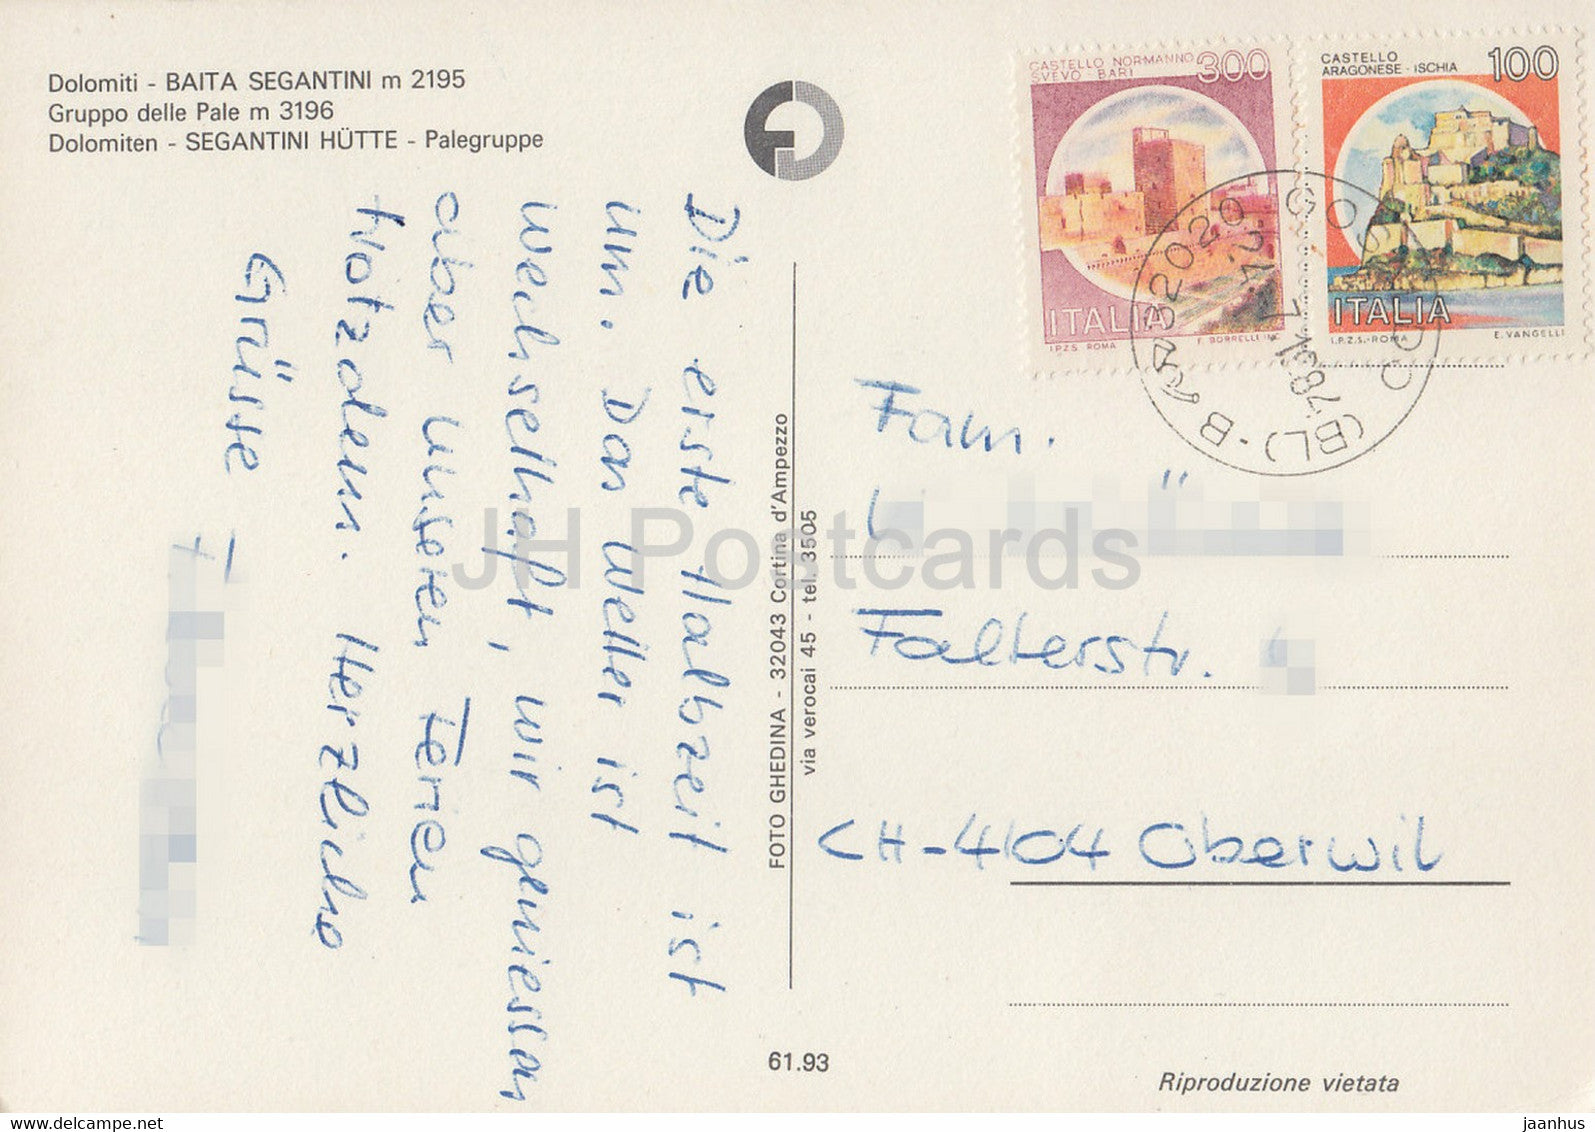 Dolomiti - BAITA SEGANTINI m 2195
Gruppo delle Pale m 3196
Dolomiten - SEGANTINI HÜTTE - Palegruppe
CASTELLO NORMANNO
SVEVO - BARI
300
ITALIA
I.P.Z.S. ROMA
F. BORRELLI INC.
CASTELLO
ARAGONESE - ISCHIA
100
ITALIA
I.P.Z.S. - ROMA
E. VANGELLI
32020
(BL) - B
Die erste Halbzeit ist
um. Das Wetter ist
wechselhaft, wir geniessen
aber unseren Ferien
trotzdem. Herzliche
Grüsse
F
FOTO GHEDINA - 32043 Cortina d'Ampezzo
via verocai 45 - tel. 3505
Fam.
Falterstr.
CH-4104 Oberwil
JH Postcards
61.93
Riproduzione vietata
www.delcampe.net
jaanhus